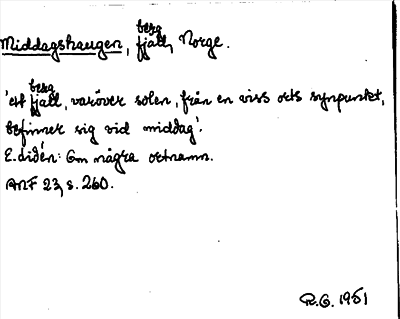 Middagshaugen, berg fjäll, Norge.
'ett berg fjäll, varöver solen, från en viss orts synpunkt,
befinner sig vid middag'.
E. Lidén: Om några ortnamn.
ANF 23, s. 260.
R.G. 1951